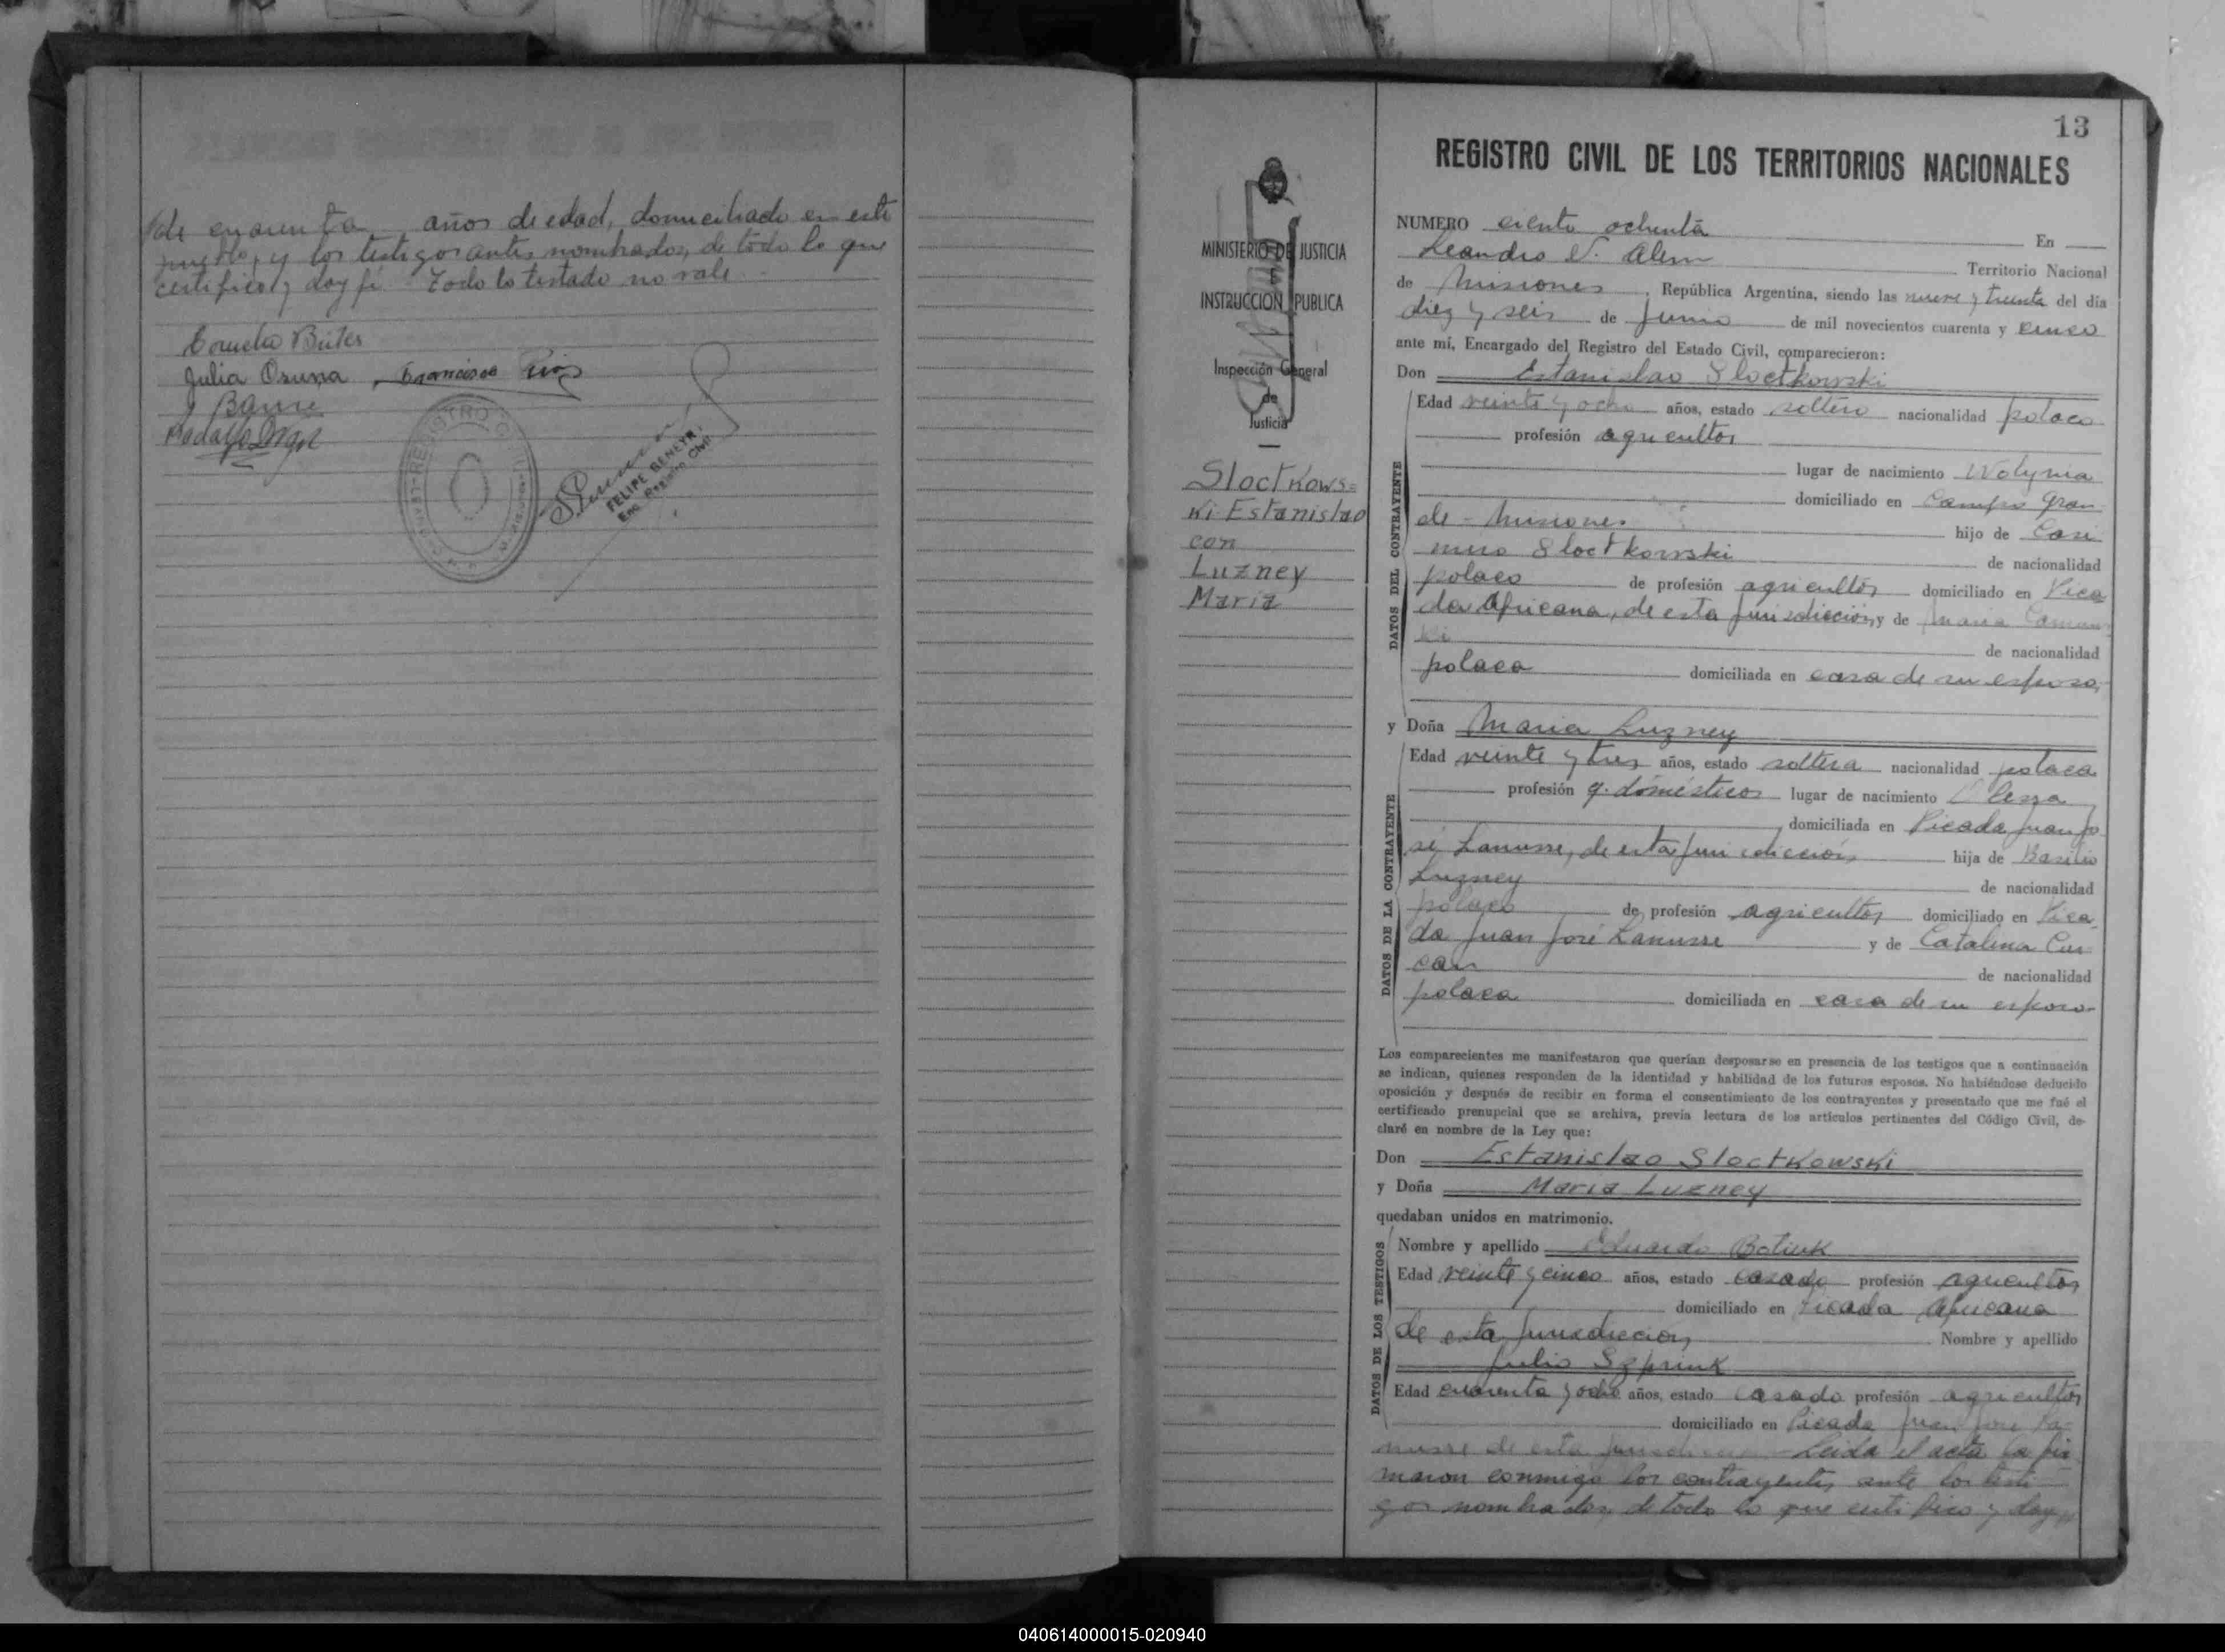 de cuarenta años de edad, domiciliado en este
pueblo, y los testigos antes nombrados, de todo lo que
certifico y doy fé. Todo lo testado no vale.
Julia Osuna Francisco
REGISTRO CIVIL
FELIPE BENEYR
Enc. Registro Civil
13
REGISTRO CIVIL DE LOS TERRITORIOS NACIONALES
MINISTERIO DE JUSTICIA
E
INSTRUCCION PUBLICA
Inspección General
de
Justicia
Sloctkows=
ki Estanislao
con
Luzney
Maria
NUMERO ciento ochenta En
Leandro N. Alem Territorio Nacional
de Misiones, República Argentina, siendo las nueve y treinta del día
diez y seis de junio de mil novecientos cuarenta y cinco
ante mí, Encargado del Registro del Estado Civil, comparecieron:
Don Estanislao Sloctkowski
DATOS DEL CONTRAYENTE
Edad veinte y ocho años, estado soltero nacionalidad polaco
profesión agricultor
lugar de nacimiento Wolynia
domiciliado en Campo Gran
de - Misiones hijo de Casi
miro Sloctkowski de nacionalidad
polaco de profesión agricultor domiciliado en Pica
da Africana, de esta jurisdicción y de Maria
de nacionalidad
polaca domiciliada en casa de su esposo,
y Doña Maria Luzney
DATOS DE LA CONTRAYENTE
Edad veinte y tres años, estado soltera nacionalidad polaca
profesión q. domésticos lugar de nacimiento
domiciliada en Picada Juan Jo
sé Lanusse, de esta jurisdicción hija de Basilio
Luzney de nacionalidad
polaco de profesión agricultor domiciliado en Pica
da Juan José Lanusse y de Catalina Cur
can de nacionalidad
polaca domiciliada en casa de su esposo
Los comparecientes me manifestaron que querían desposarse en presencia de los testigos que a continuación
se indican, quienes responden de la identidad y habilidad de los futuros esposos. No habiéndose deducido
oposición y después de recibir en forma el consentimiento de los contrayentes y presentado que me fué el
certificado prenupcial que se archiva, previa lectura de los artículos pertinentes del Código Civil, de-
claré en nombre de la Ley que:
Don Estanislao Sloctkowski
y Doña Maria Luzney
quedaban unidos en matrimonio.
DATOS DE LOS TESTIGOS
Nombre y apellido Eduardo Botiuk
Edad veinte y cinco años, estado casado profesión agricultor
domiciliado en Picada Africana
de esta jurisdicción Nombre y apellido
Julio Szpriuk
Edad cuarenta y ocho años, estado casado profesión agricultor
domiciliado en Picada Juan José La-
nusse de esta jurisdicción - Leida el acta la fir
maron conmigo los contrayentes ante los testi
gos nombrados, de todo lo que certifico y doy
040614000015-020940